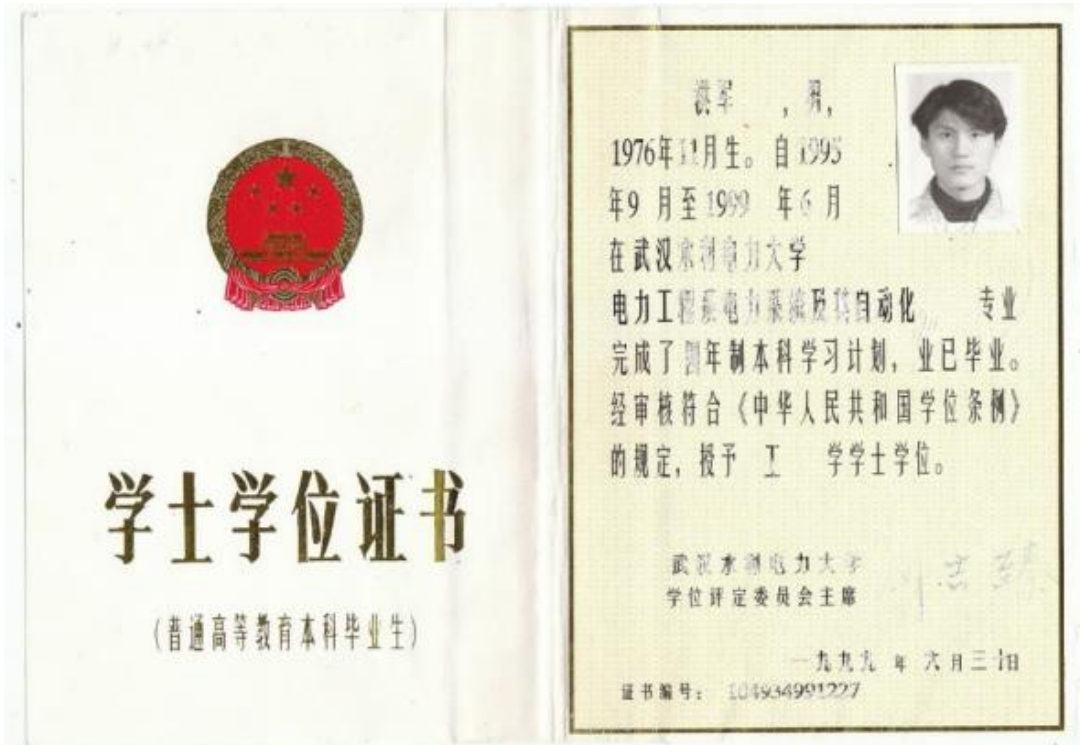 学士学位证书
(普通高等教育本科毕业生)
洪军 ，男，
1976年11月生。自1995
年9 月至1999 年6月
在武汉水利电力大学
电力工程系电力系统及其自动化 专业
完成了四年制本科学习计划，业已毕业。
经审核符合《中华人民共和国学位条例》
的规定，授予 工 学学士学位。
武汉水利电力大学
学位评定委员会主席
一九九九 年 六月三十日
证书编号： 104934991227